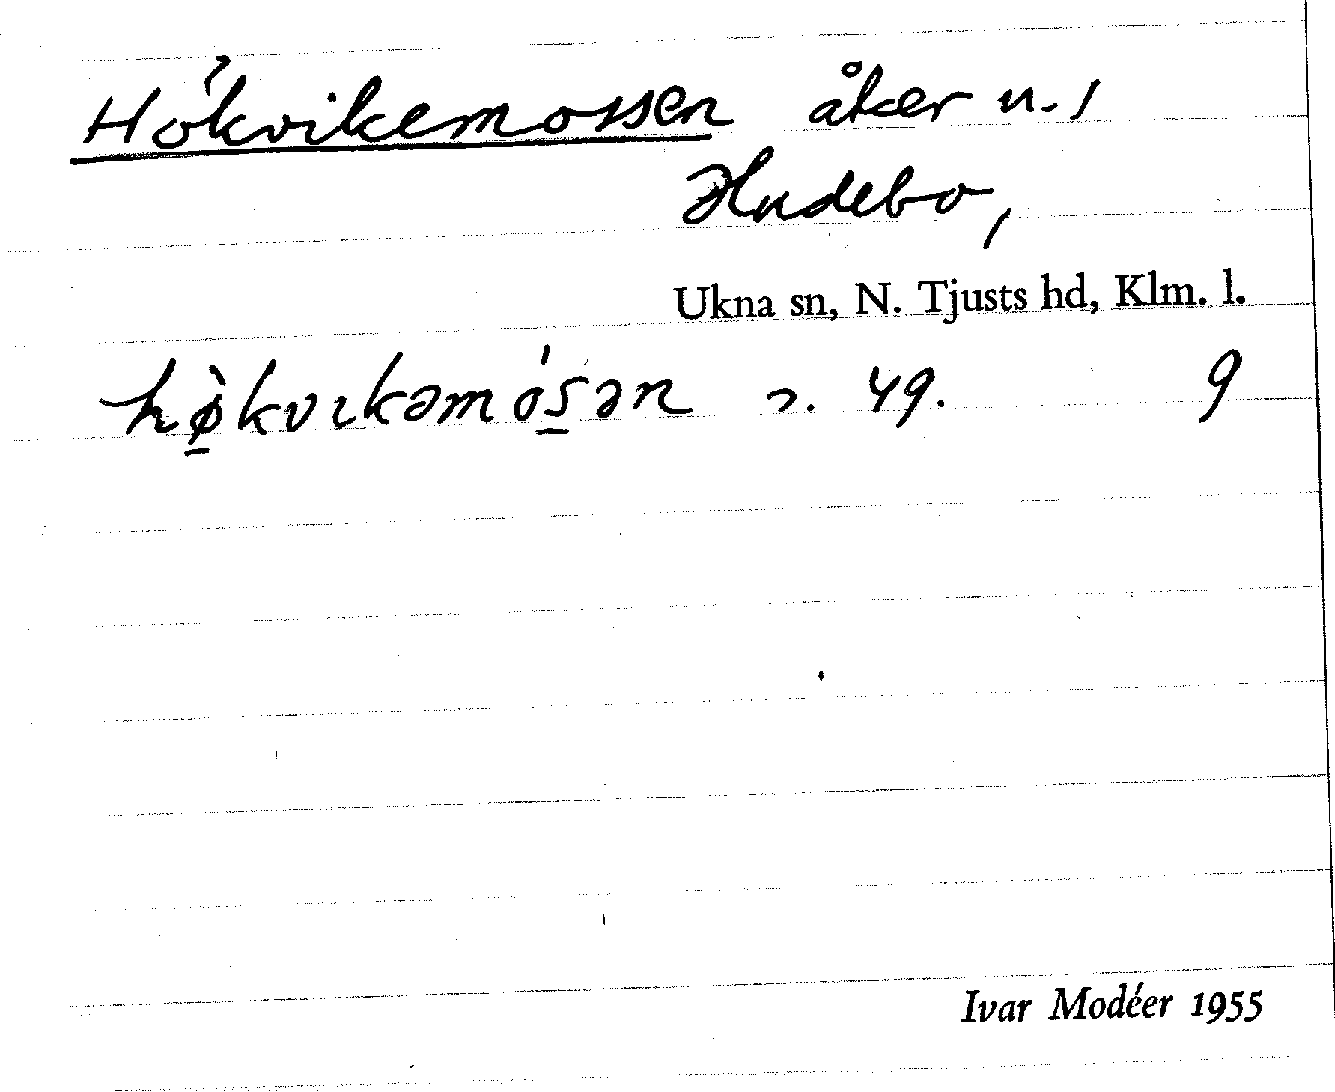 Hökvikemossen åker u. 1
Hudebo,
Ukna sn, N. Tjusts hd, Klm. l.
hø̀kvɩkəmósən 49. 9
Ivar Modéer 1955